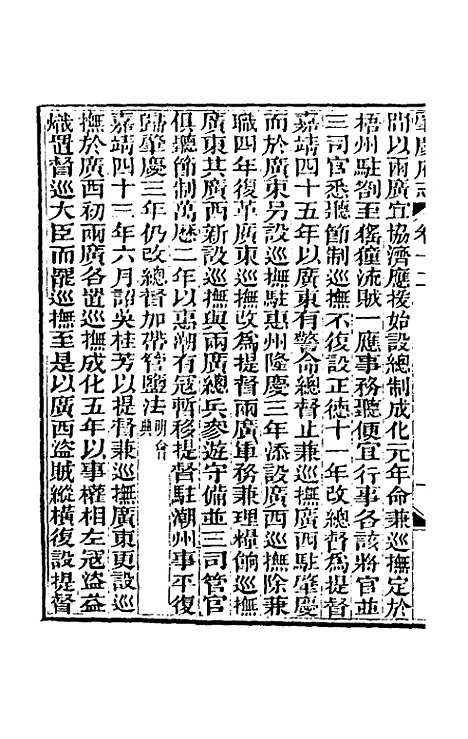 肇慶府志 卷十二
間以兩廣宜協濟應援始設總制成化元年命兼巡撫定於
梧州駐劄至猺獞流賊一應事務聽便宜行事各該將官並
三司官悉聽節制巡撫不復設正德十一年改總督為提督
嘉靖四十五年以廣東有警命總督止兼巡撫廣西駐肇慶
而於廣東另設巡撫駐惠州隆慶三年添設廣西巡撫除兼
職四年復革廣東巡撫改為提督兩廣軍務兼理糧餉巡撫
廣東其廣西新設巡撫與兩廣總兵參遊守備並三司管官
俱聽節制萬歷二年以惠潮有寇暫移提督駐潮州事平復
歸肇慶三年仍改總督加帶管鹽法明會典
嘉靖四十三年六月詔吳桂芳以提督兼巡撫廣東更設巡
撫於廣西初兩廣各置巡撫成化五年以事權相左寇盜益
熾置督巡大臣而罷巡撫至是以廣西盜賊縱橫復設提督